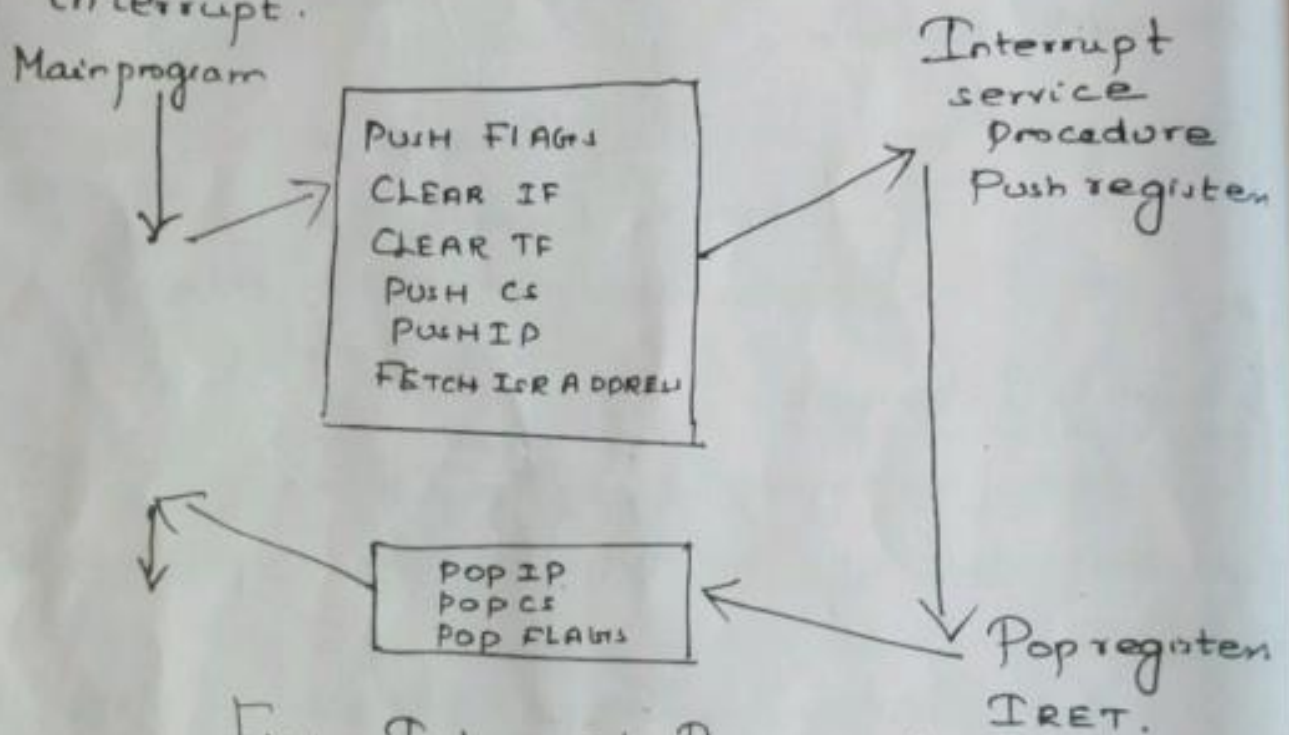 interrupt.
Main program
PUSH FLAGS
CLEAR IF
CLEAR TF
PUSH CS
PUSH IP
FETCH ISR ADDRESS
Interrupt
service
procedure
Push registers
POP IP
POP CS
POP FLAGS
Pop registers
IRET.